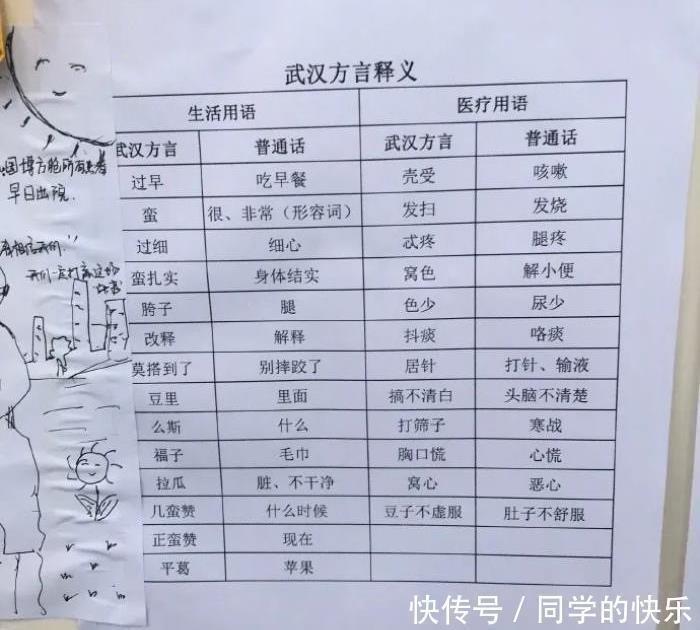 武汉方言释义
生活用语 医疗用语
武汉方言 普通话 武汉方言 普通话
过早 吃早餐 壳受 咳嗽
蛮 很、非常（形容词） 发扫 发烧
过细 细心 忒疼 腿疼
蛮扎实 身体结实 窝色 解小便
胯子 腿 色少 尿少
改释 解释 抖痰 咯痰
莫搭到了 别摔跤了 居针 打针、输液
豆里 里面 搞不清白 头脑不清楚
么斯 什么 打筛子 寒战
福子 毛巾 胸口慌 心慌
拉瓜 脏、不干净 窝心 恶心
几蛮赞 什么时候 豆子不虚服 肚子不舒服
正蛮赞 现在
平葛 苹果
国博方舱所有患者
早日出院.
我们一定打赢这场
快传号 / 同学的快乐